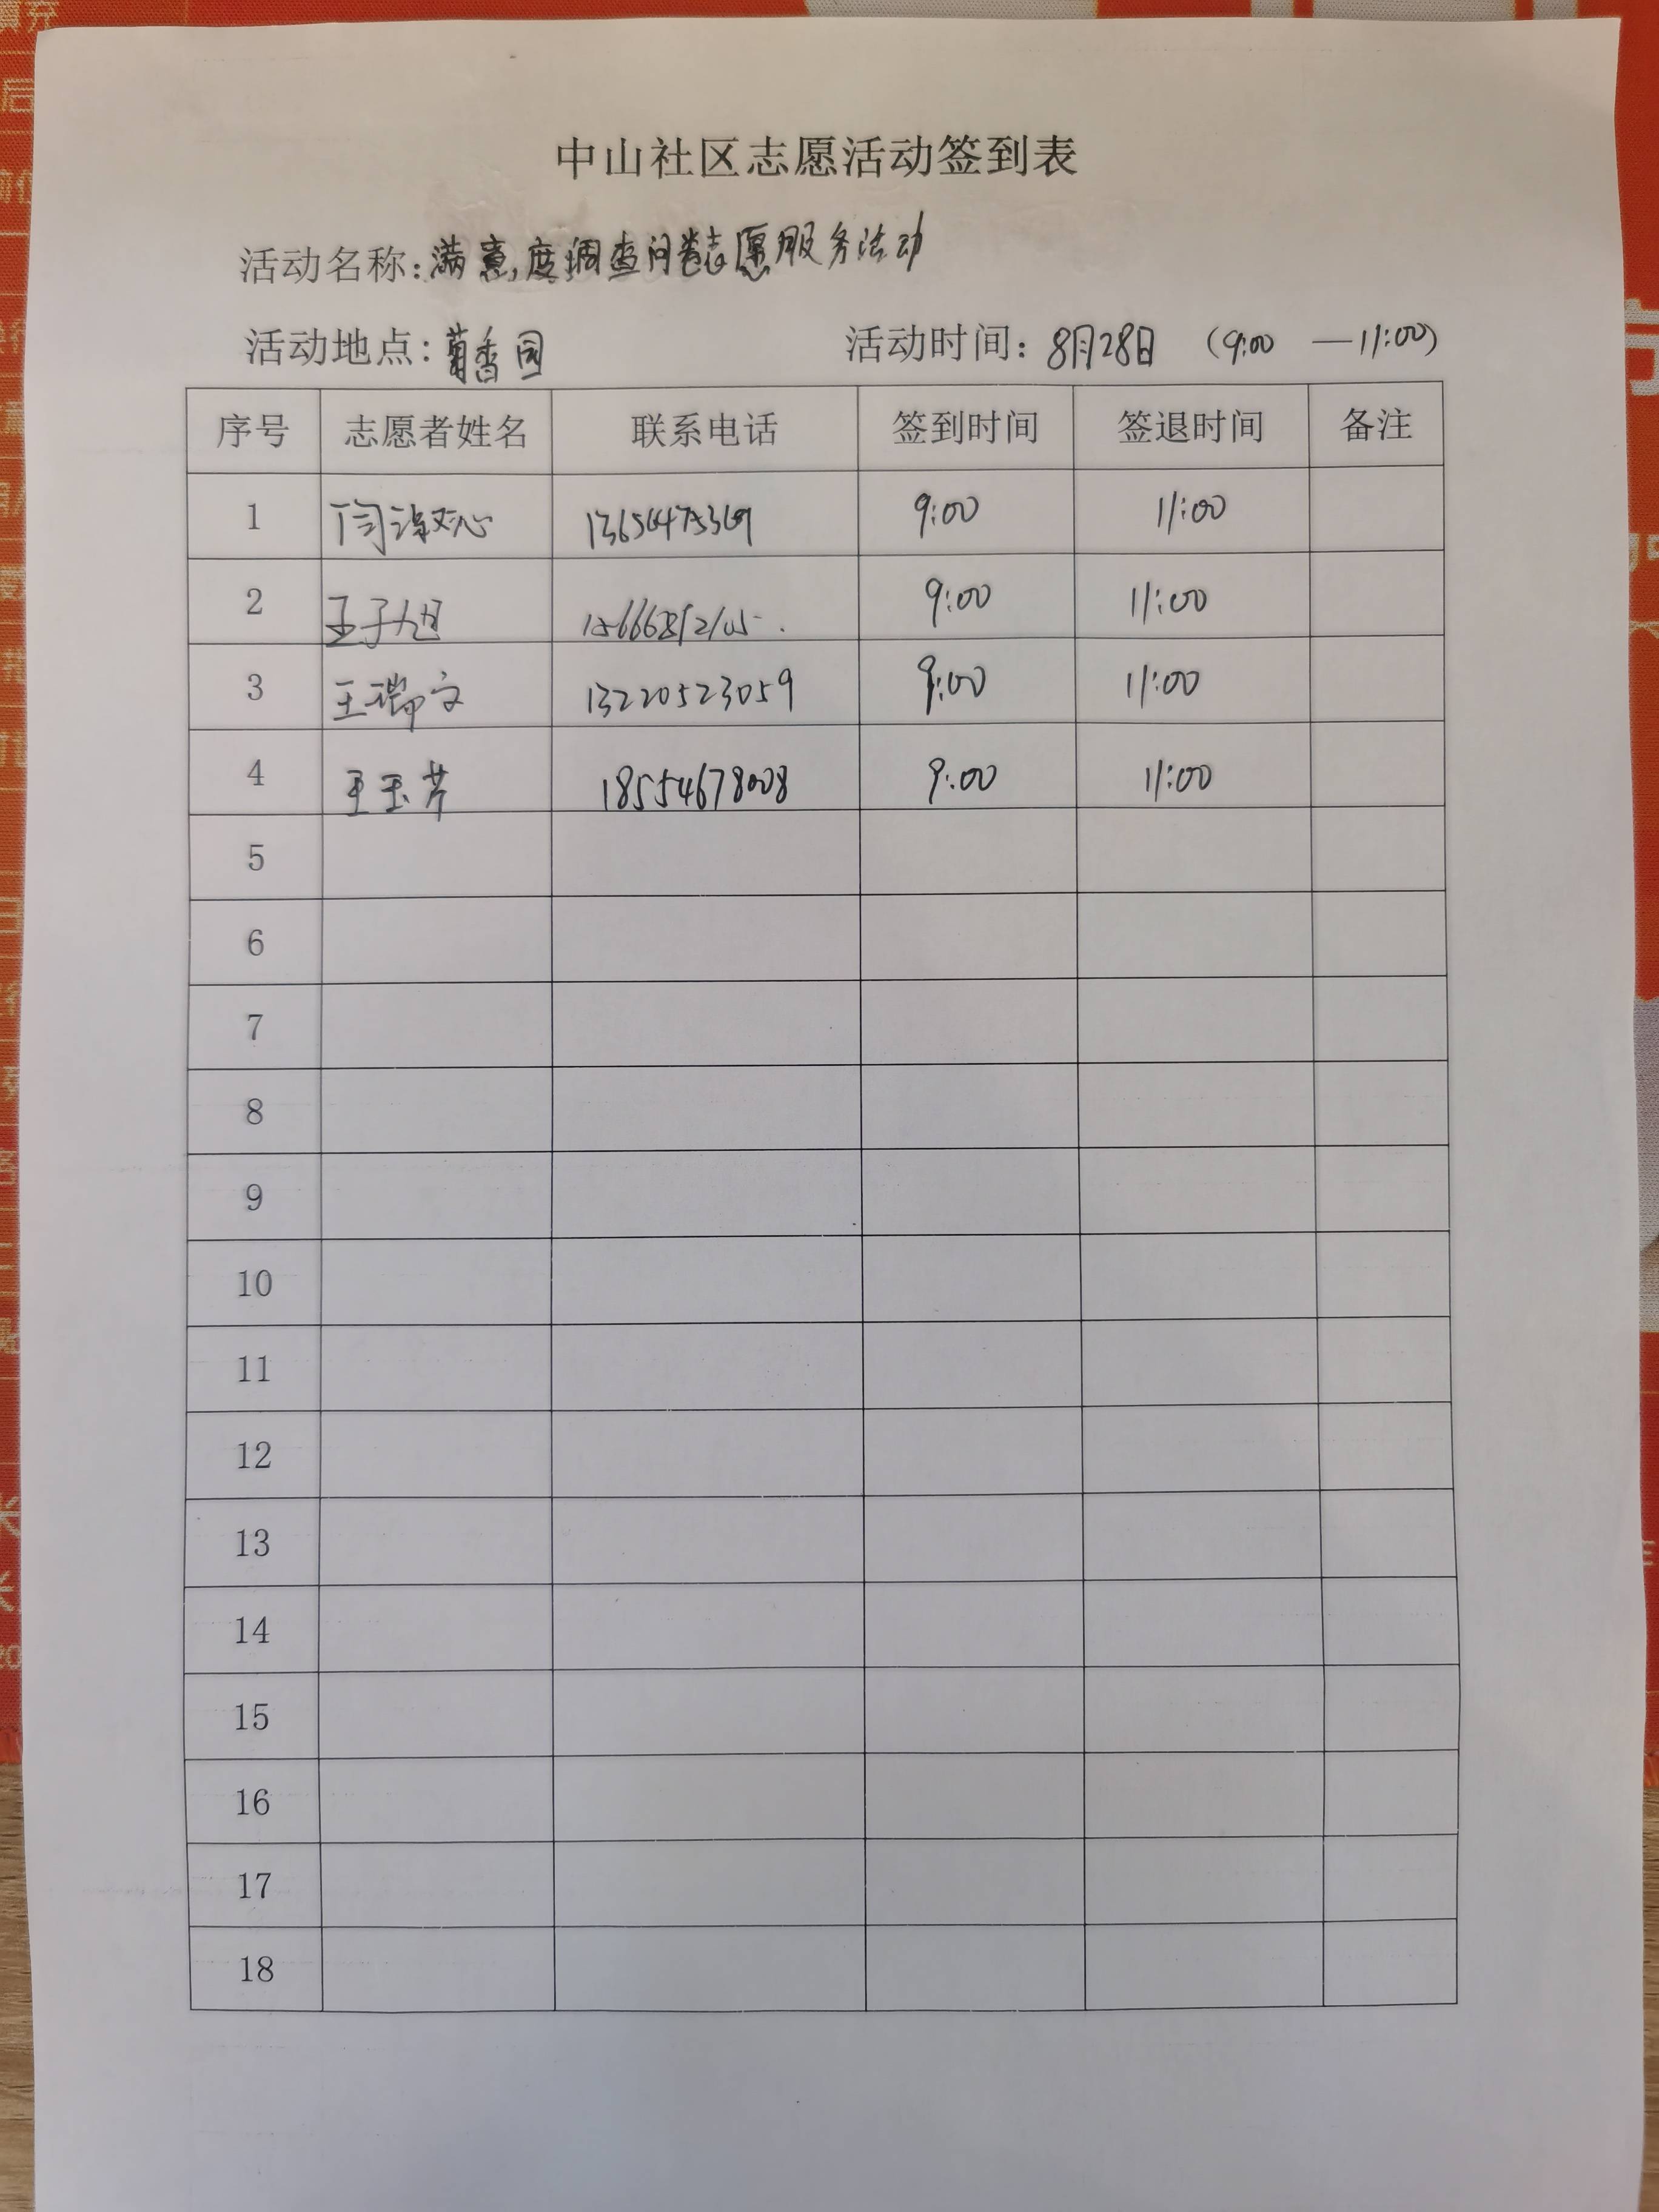 中山社区志愿活动签到表
活动名称:满意度调查问卷志愿服务活动
活动地点:菊香园 活动时间:8月28日 (9:00 —11:00)
序号 志愿者姓名 联系电话 签到时间 签退时间 备注
1 9:00 11:00
2 王子旭 9:00 11:00
3 王瑞文 13220523059 9:00 11:00
4 王玉芹 18554678008 9:00 11:00
5
6
7
8
9
10
11
12
13
14
15
16
17
18